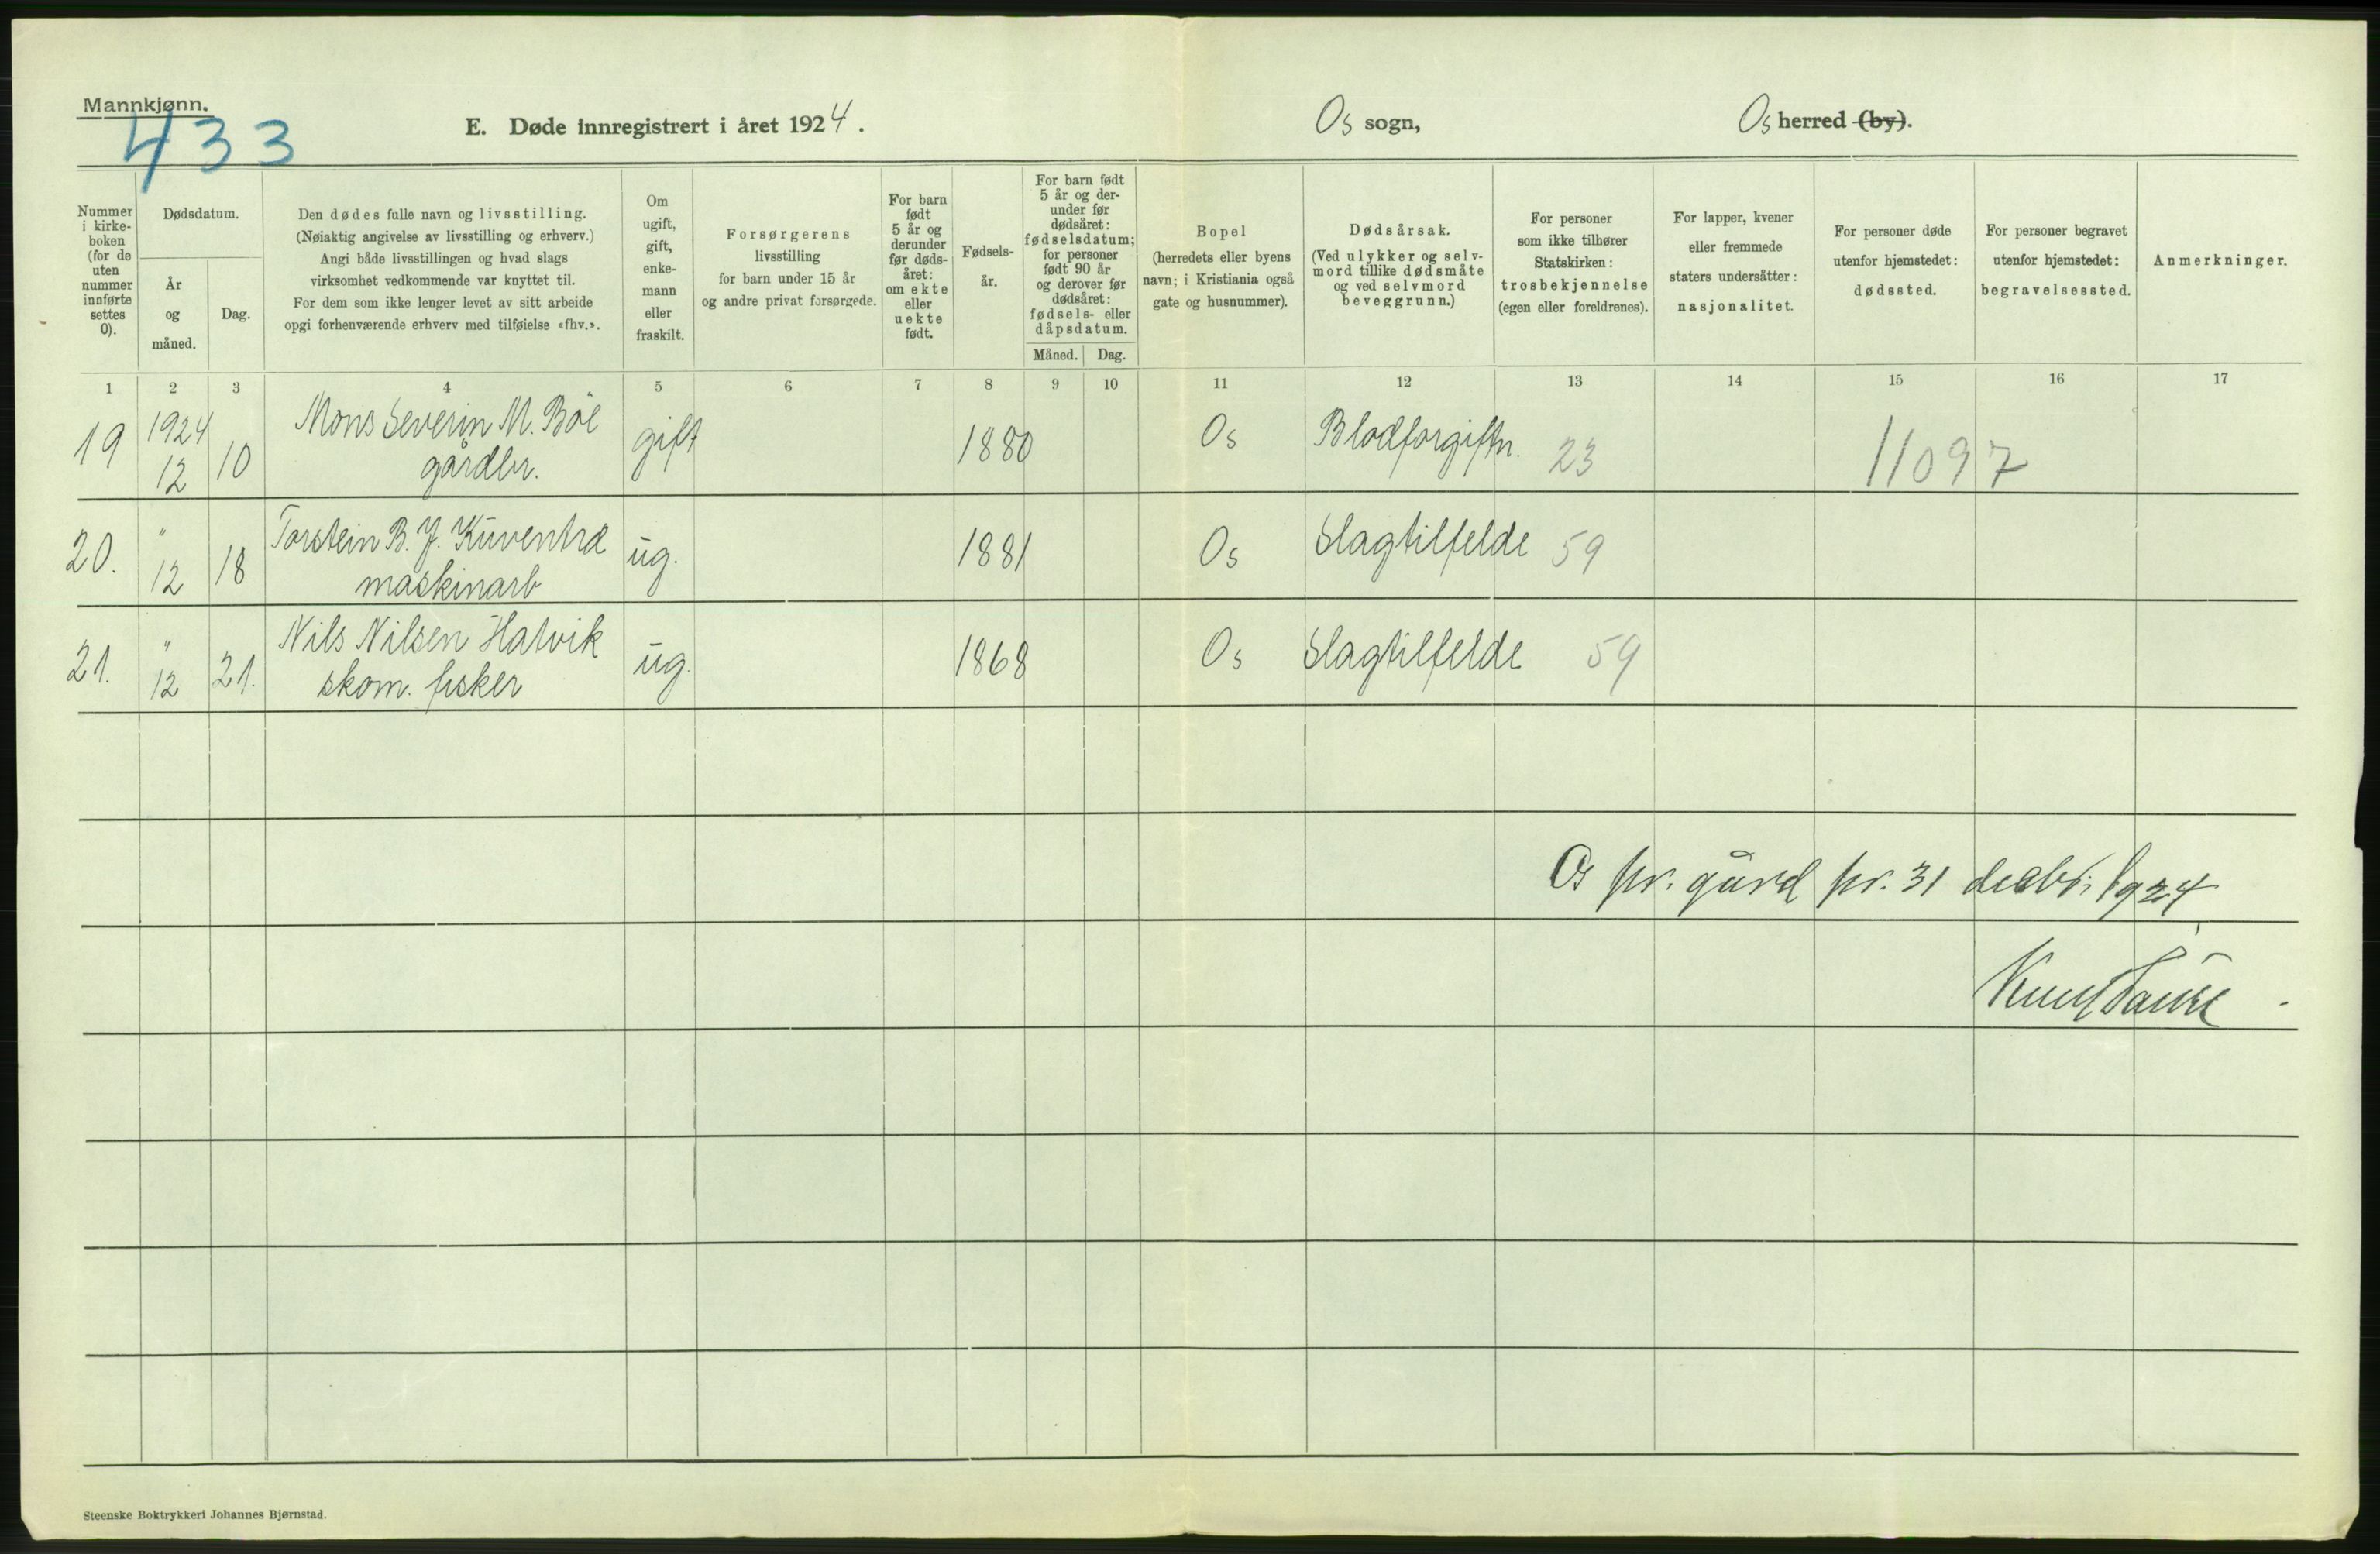 Mannkjønn.
433
E. Døde innregistrert i året 1924.
Os sogn,
Os herred (by).
Nummer i kirke-boken (for de uten nummer innførte settes 0).
Dødsdatum.
År og måned.
Dag.
Den dødes fulle navn og livsstilling.
(Nøiaktig angivelse av livsstilling og erhverv.)
Angi både livsstillingen og hvad slags
virksomhet vedkommende var knyttet til.
For dem som ikke lenger levet av sitt arbeide
opgi forhenværende erhverv med tilføielse «fhv.».
Om ugift, gift, enke-mann eller fraskilt.
Forsørgerens
livsstilling
for barn under 15 år
og andre privat forsørgede.
For barn født 5 år og derunder før døds-året: om ekte eller uekte født.
Fødsels-år.
For barn født 5 år og der-under før dødsåret: fødselsdatum; for personer født 90 år og derover før dødsåret: fødsels- eller dåpsdatum.
Måned.
Dag.
Bopel
(herredets eller byens
navn; i Kristiania også
gate og husnummer).
Dødsårsak.
(Ved ulykker og selv-
mord tillike dødsmåte
og ved selvmord
beveggrunn.)
For personer
som ikke tilhører
Statskirken:
trosbekjennelse
(egen eller foreldrenes).
For lapper, kvener
eller fremmede
staters undersåtter:
nasjonalitet.
For personer døde
utenfor hjemstedet:
dødssted.
For personer begravet
utenfor hjemstedet:
begravelsessted.
Anmerkninger.
1 2 3 4 5 6 7 8 9 10 11 12 13 14 15 16 17
19 1924 12 10 Mons Severin M. Böe gårdbr. gift 1880 Os Blodforgiftn. 23 11097
20. " 12 18 Torstein B. J. maskinarb ug. 1881 Os Slagtilfelde 59
21. " 12 21. Nils Nilsen Hatvik skom. fisker ug. 1868 Os Slagtilfelde 59
Os pr. gård pr. 31 decbr. 1924
Steenske Boktrykkeri Johannes Bjørnstad.